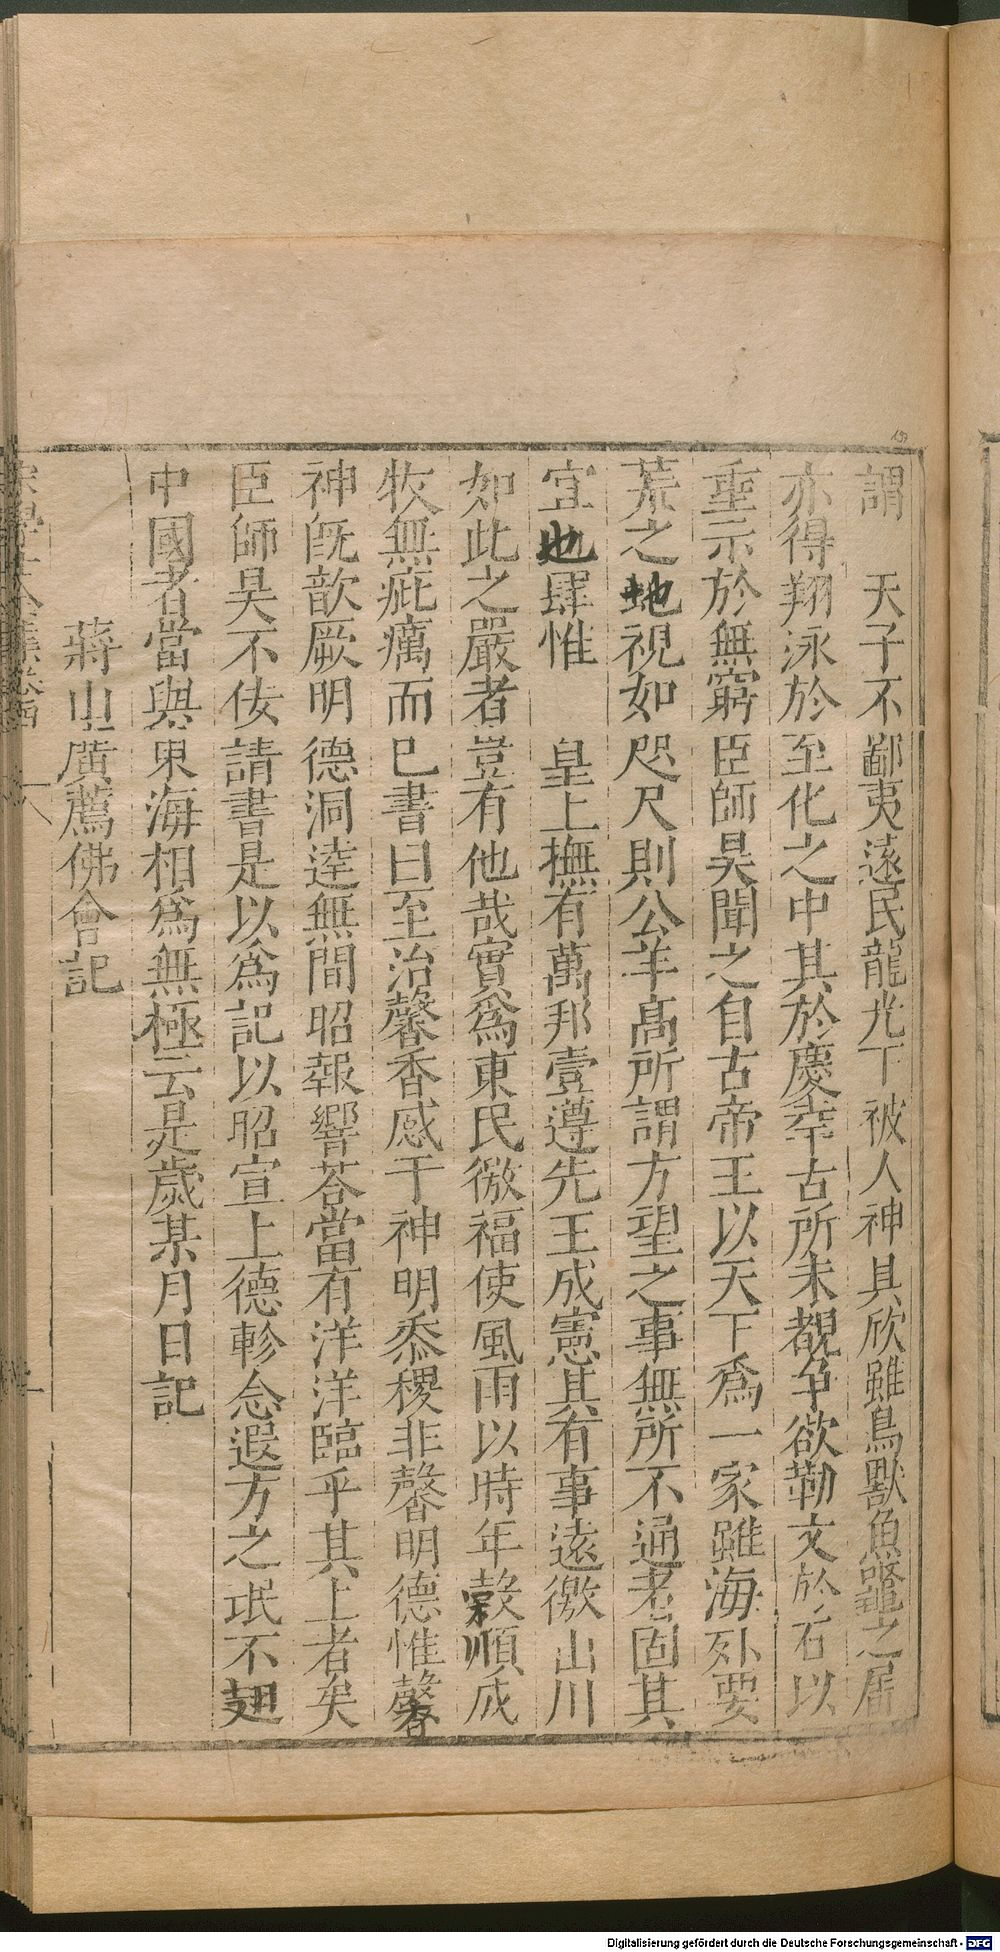 謂　天子不鄙夷遠民龍光下被人神具欣雖鳥獸魚鼈之居
亦得翔泳於至化之中其於慶幸古所未覩争欲勒文於石以
垂示於無窮臣師昊聞之自古帝王以天下爲一家雖海外要
荒之地視如咫尺則公羊高所謂方望之事無所不通者固其
宜也肆惟　皇上撫有萬邦壹遵先王成憲其有事遠徼山川
如此之嚴者豈有他哉實爲東民徼福使風雨以時年穀順成
牧無疵癘而已書曰至治馨香感于神明黍稷非馨明德惟馨
神旣歆厥明德洞達無間昭報響荅當有洋洋臨乎其上者矣
臣師昊不佞請書是以爲記以昭宣上德軫念遐方之氓不翅
中國者當與東海相爲無極云是歲某月日記
蔣山廣薦佛會記
Digitalisierung gefördert durch die Deutsche Forschungsgemeinschaft - DFG